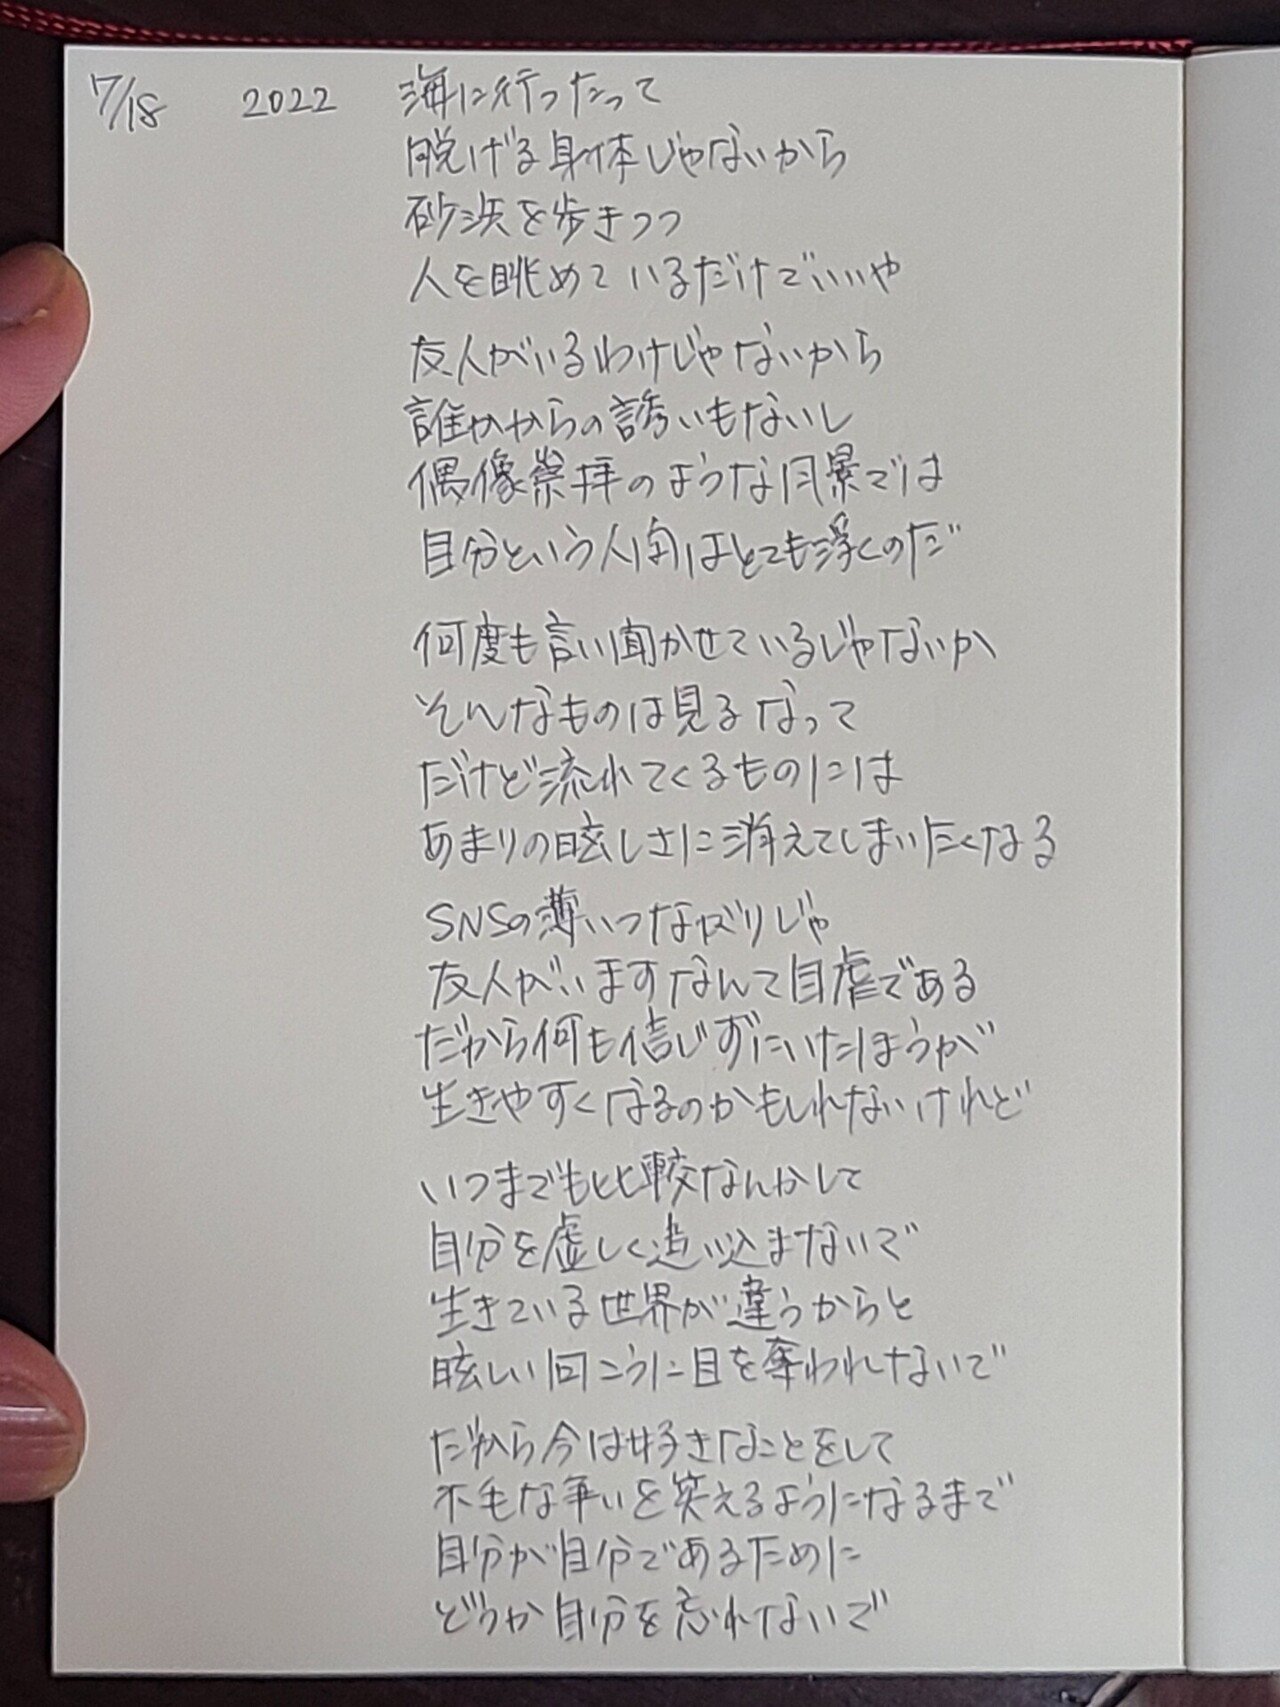 7/18 2022 海に行ったって
脱げる身体じゃないから
砂浜を歩きつつ
人を眺めているだけでいいや
友人がいるわけじゃないから
誰かからの誘いもないし
偶像崇拝のような風景では
自分という人間はとても浮くのだ
何度も言い聞かせているじゃないか
そんなものは見るなって
だけど流れてくるものには
あまりの眩しさに消えてしまいたくなる
SNSの薄いつながりじゃ
友人がいますなんて自虐である
だから何も信じずにいたほうが
生きやすくなるのかもしれないけれど
いつまでも比較なんかして
自分を虚しく追い込まないで
生きている世界が違うからと
眩しい向こうに目を奪われないで
だから今は好きなことをして
不毛な争いを笑えるようになるまで
自分が自分であるために
どうか自分を忘れないで